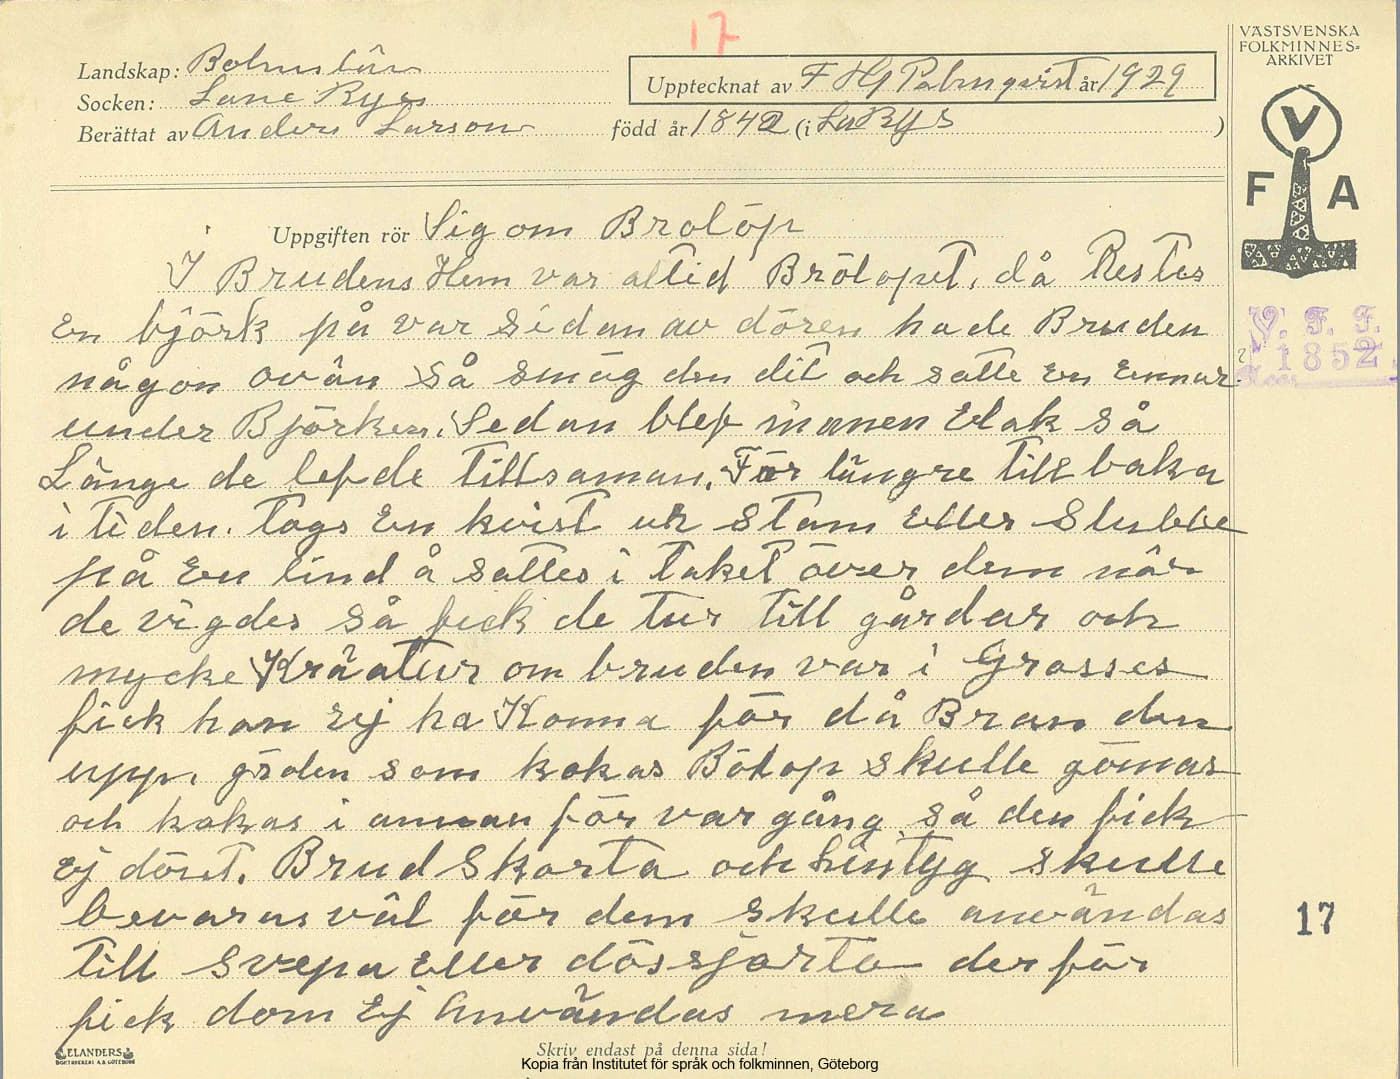 17
VÄSTSVENSKA
FOLKMINNES-
ARKIVET
Landskap: Bohuslän
Upptecknat av F Hj Palmqvist år 1929
Socken: Lane Ryes
Berättat av Anders Larson född år 1842 (i La Rys )
V
F A
Uppgiften rör Sig om Brolöp
I Brudens Hem var altid Brölopet, då Restes
En björk på var sidan av dören hade Bruden
någon ovän så smög den dit och satte en Ennar
under Björken. Sedan blef manen Elak så
Länge de lefde tillsaman. För längre tillbaka
i tiden. togs En kvist ur Stam Eller Stubbe
på En lind å sattes i taket över dem när
de vigdes så fick de tur till gårdar och
mycke Kräatur om bruden var i Grosses
fick hon Ej ha Kronna för då Bran den
upp. gröten som kokas Bölop skulle gömas
och kokas i annan för var gång så den fick
Ej dönt. Brud Skorta och Lintyg skulle
bevaras väl för dem skulle användas
till svepa Eller dösskjorta der för
fick dom Ej Användas mera
V. F. F.
1852
17
ELANDERS
BOKTRYCKERI A.B. GÖTEBORG
Skriv endast på denna sida!
Kopia från Institutet för språk och folkminnen, Göteborg